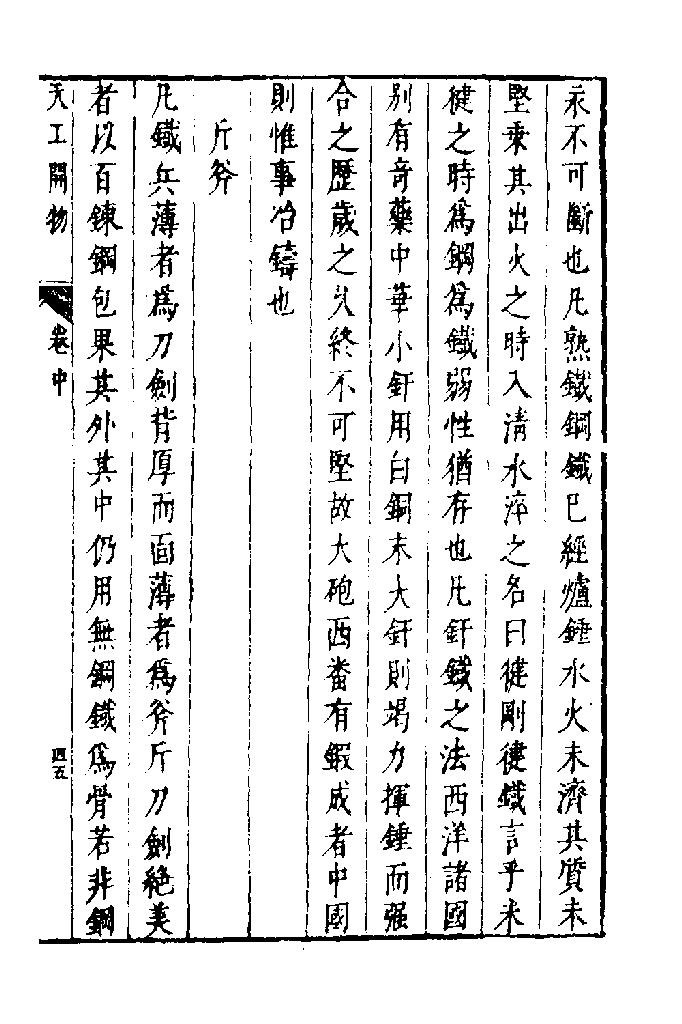 永不可斷也凡熟鐵鋼鐵已經爐錘水火未濟其質未
堅乘其出火之時入清水淬之名曰徤鋼徤鐵言乎未
徤之時為鋼為鐵弱性猶存也凡釬鐵之法西洋諸國
別有奇藥中華小釬用白銅末大釬則竭力揮錘而强
合之歷歲之久終不可堅故大砲西番有鍜成者中國
則惟事冶鑄也
斤斧
凡鐵兵薄者為刀劍背厚而面薄者為斧斤刀劍絶美
者以百鍊鋼包果其外其中仍用無鋼鐵為骨若非鋼
天工開物 卷中 四五